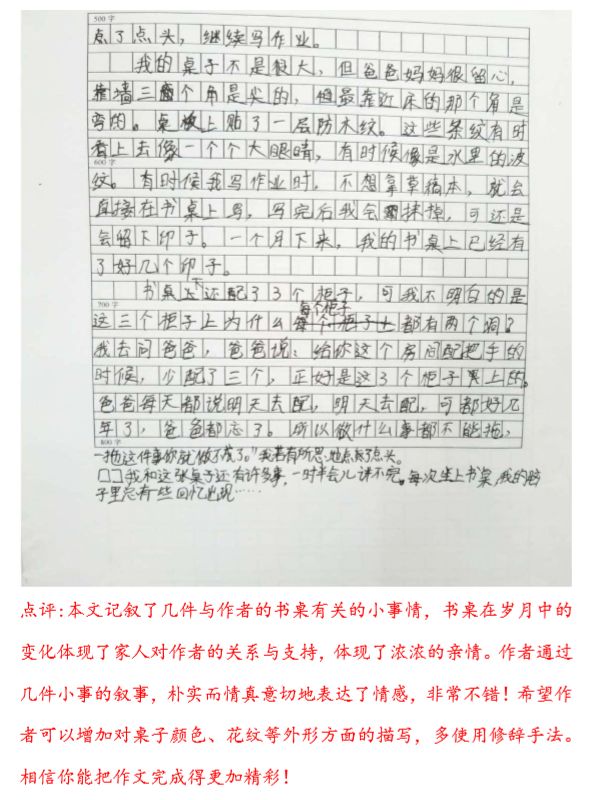 500字
点了点头，继续写作业。
我的桌子不是很大，但爸爸妈妈很留心，
靠墙三个角是尖的，但最靠近床的那个角是
弯的。桌上贴了一层防木纹。这些条纹有时
看上去像一个个大眼睛，有时候像是水里的波
600字
纹。有时候我写作业时，不想拿草稿本，就会
直接在书桌上写，写完后我会抹掉，可还是
会留下印子。一个月下来，我的书桌上已经有
了好几个印子。
书桌下还配了3个柜子，可我不明白的是
700字
每个柜子
这三个柜子上为什么每个柜子上都有两个洞？
我去问爸爸，爸爸说：给你这个房间配把手的
时候，少配了三个，正好是这3个柜子上的。
爸爸每天都说明天去配，明天去配，可都好几
年了，爸爸都忘了。所以做什么事都不能拖，
800字
一拖这件事你就做不成了。"我若有所思地点了点头。
口口我和这张桌子还有许多事，一时半会儿讲不完。每次坐上书桌，我的脑
子里总有一些回忆出现……
点评:本文记叙了几件与作者的书桌有关的小事情，书桌在岁月中的
变化体现了家人对作者的关系与支持，体现了浓浓的亲情。作者通过
几件小事的叙事，朴实而情真意切地表达了情感，非常不错！希望作
者可以增加对桌子颜色、花纹等外形方面的描写，多使用修辞手法。
相信你能把作文完成得更加精彩！